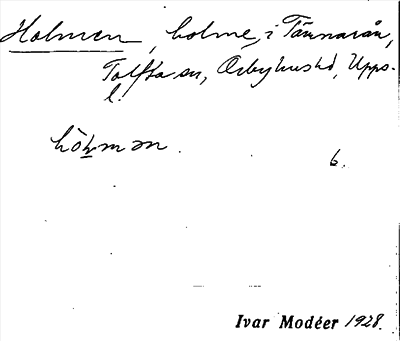 Holmen, holme, i Tämnarån,
Tolfta sn, Örbyhus hd, Upps.
l.
hòl̬mən.
6.
Ivar Modéer 1928.